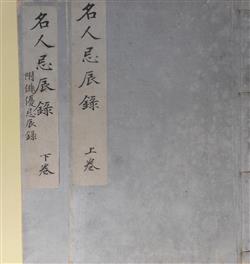 名人忌辰錄 上卷
名人忌辰錄 下卷
附俳優忌辰錄